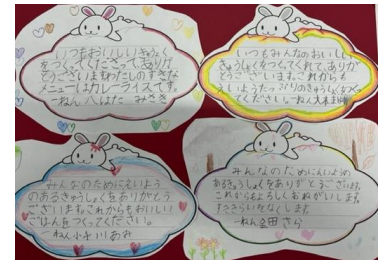 いつもおいしいきゅうしょく
をつくってくださってありが
とうございますわたしのすきな
メニューはカレーライスです。
一ねん 八はた みさき
いつもみんなのおいしい
きゅうしょくをつくてくれて、ありが
とうございます。これからも
えいようたっぷりのきゅうしょくをつくっ
てください。一ねん 大木
みんなのためにえいよう
のあるきゅうしょくをありがとう
ございます。これからもおいしい
ごはんをつくってください。
一ねん 小川 あみ
みんなのためにえいようの
あるきゅうしょくをありがとうございます。
これからもよろしくおねがいします。
一ねん 田 さら